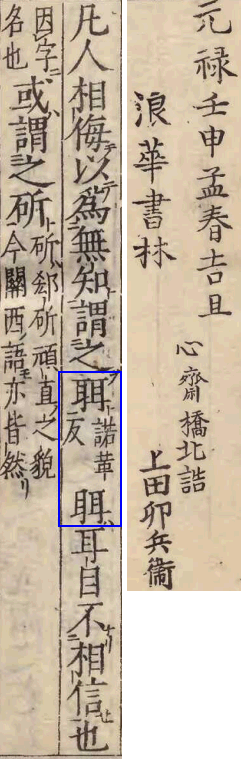 元禄壬申孟春吉旦
浪華書林
心齋橋北詰
上田卯兵衞
凡人相侮以為無知謂之眲諾革反眲耳目不相信也
因字名也或謂之斫斫郤斫頑直之貌今關西語亦皆然